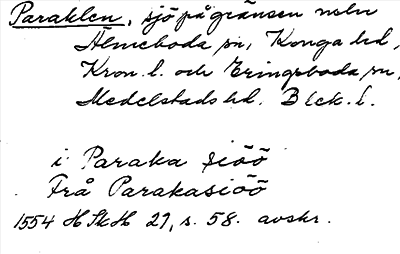 Paraklen, sjö på gränsen mellan
Älmeboda sn, Konga hd,
Kron. l. och Eringsboda sn,
Medelstads hd. Blek. l.
i Paraka siöö
Från Parakasiöö
1554 HSkH 27, s. 58. avskr.